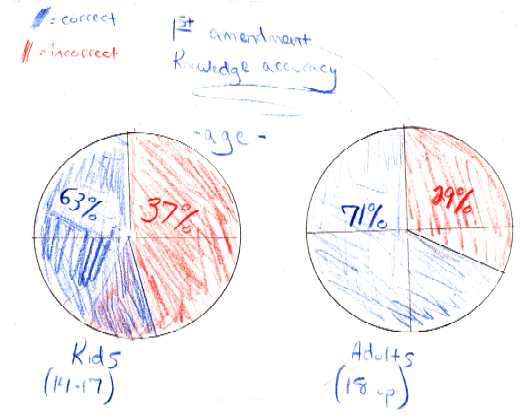 = correct
= incorrect
1st amendment
Knowledge accuracy
- age -
63%
37%
71%
29%
Kids
(14-17)
Adults
(18 up)